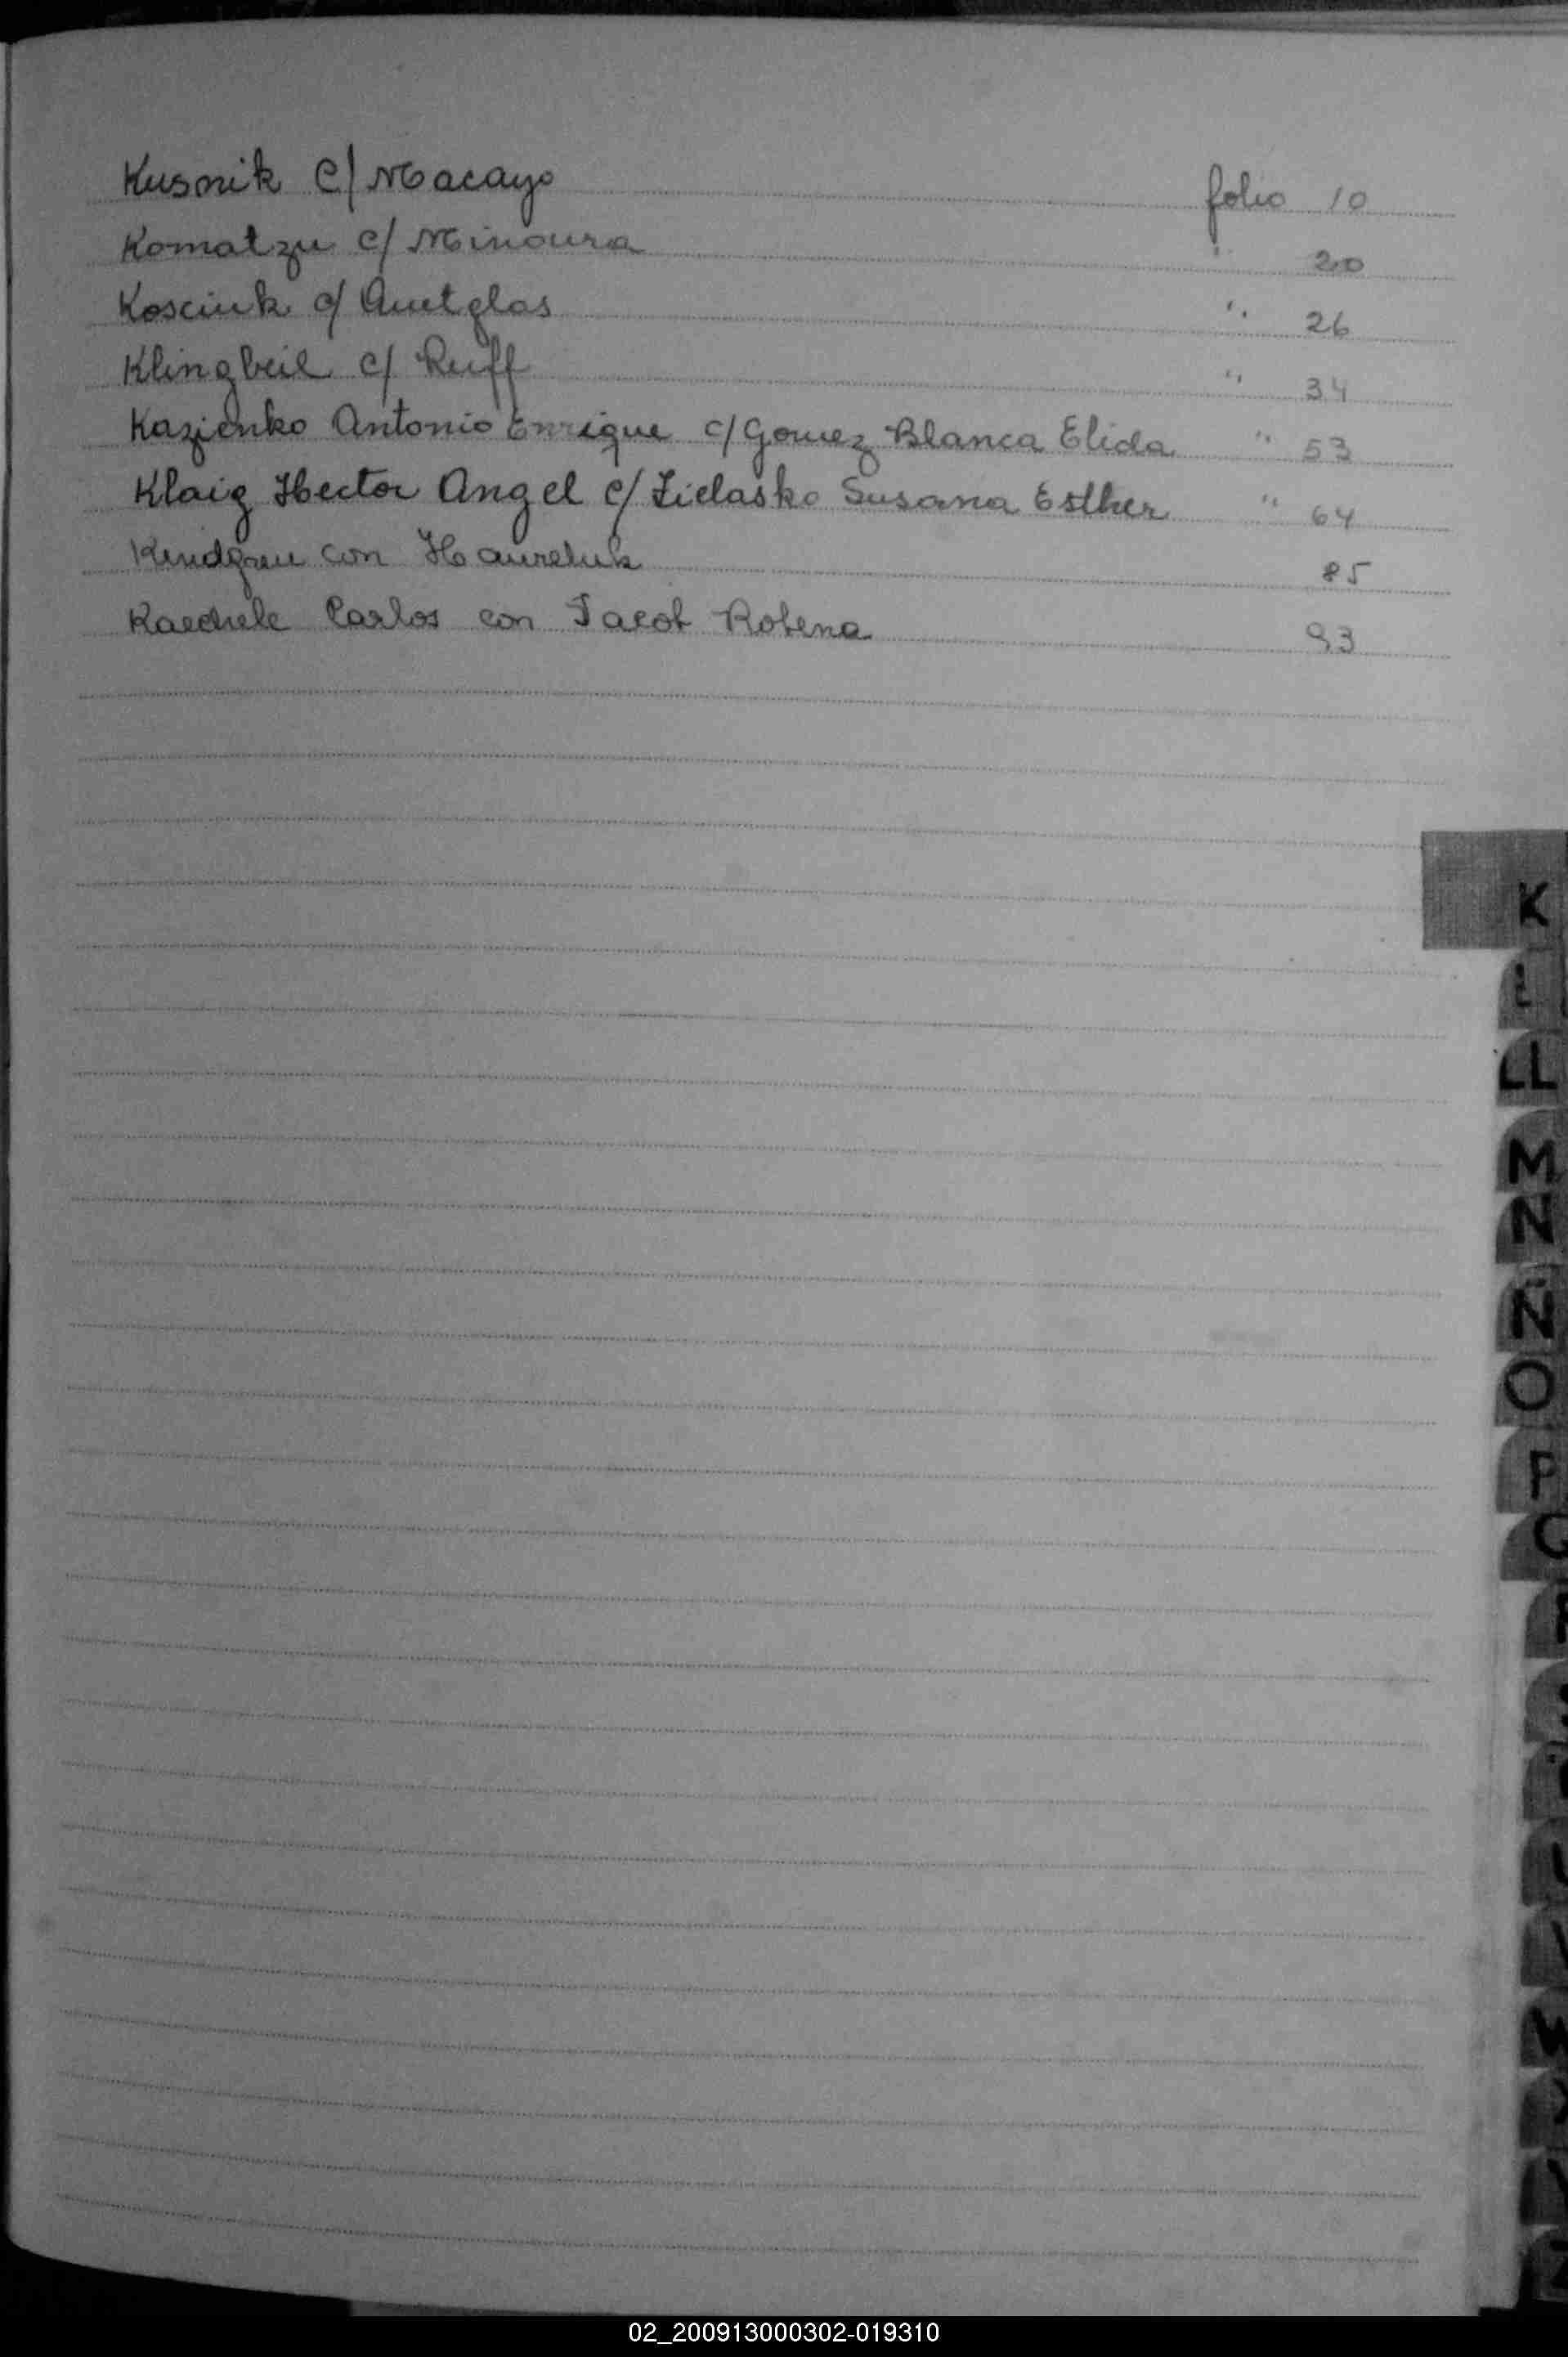 Kusnik C/ Macayo folio 10
Komatzu c/ Minoura " 20
Kosciuk c/ Auetglas " 26
Klingbeil c/ Ruff " 34
Kazienko Antonio Enrique c/ Gomez Blanca Elida " 53
Klaig Hector Angel c/ Zielasko Susana Esther " 64
Kindgren con Haureluk 85
Kaechele Carlos con Jacob Robena 93
K
L
LL
M
N
Ñ
O
P
02_200913000302-019310